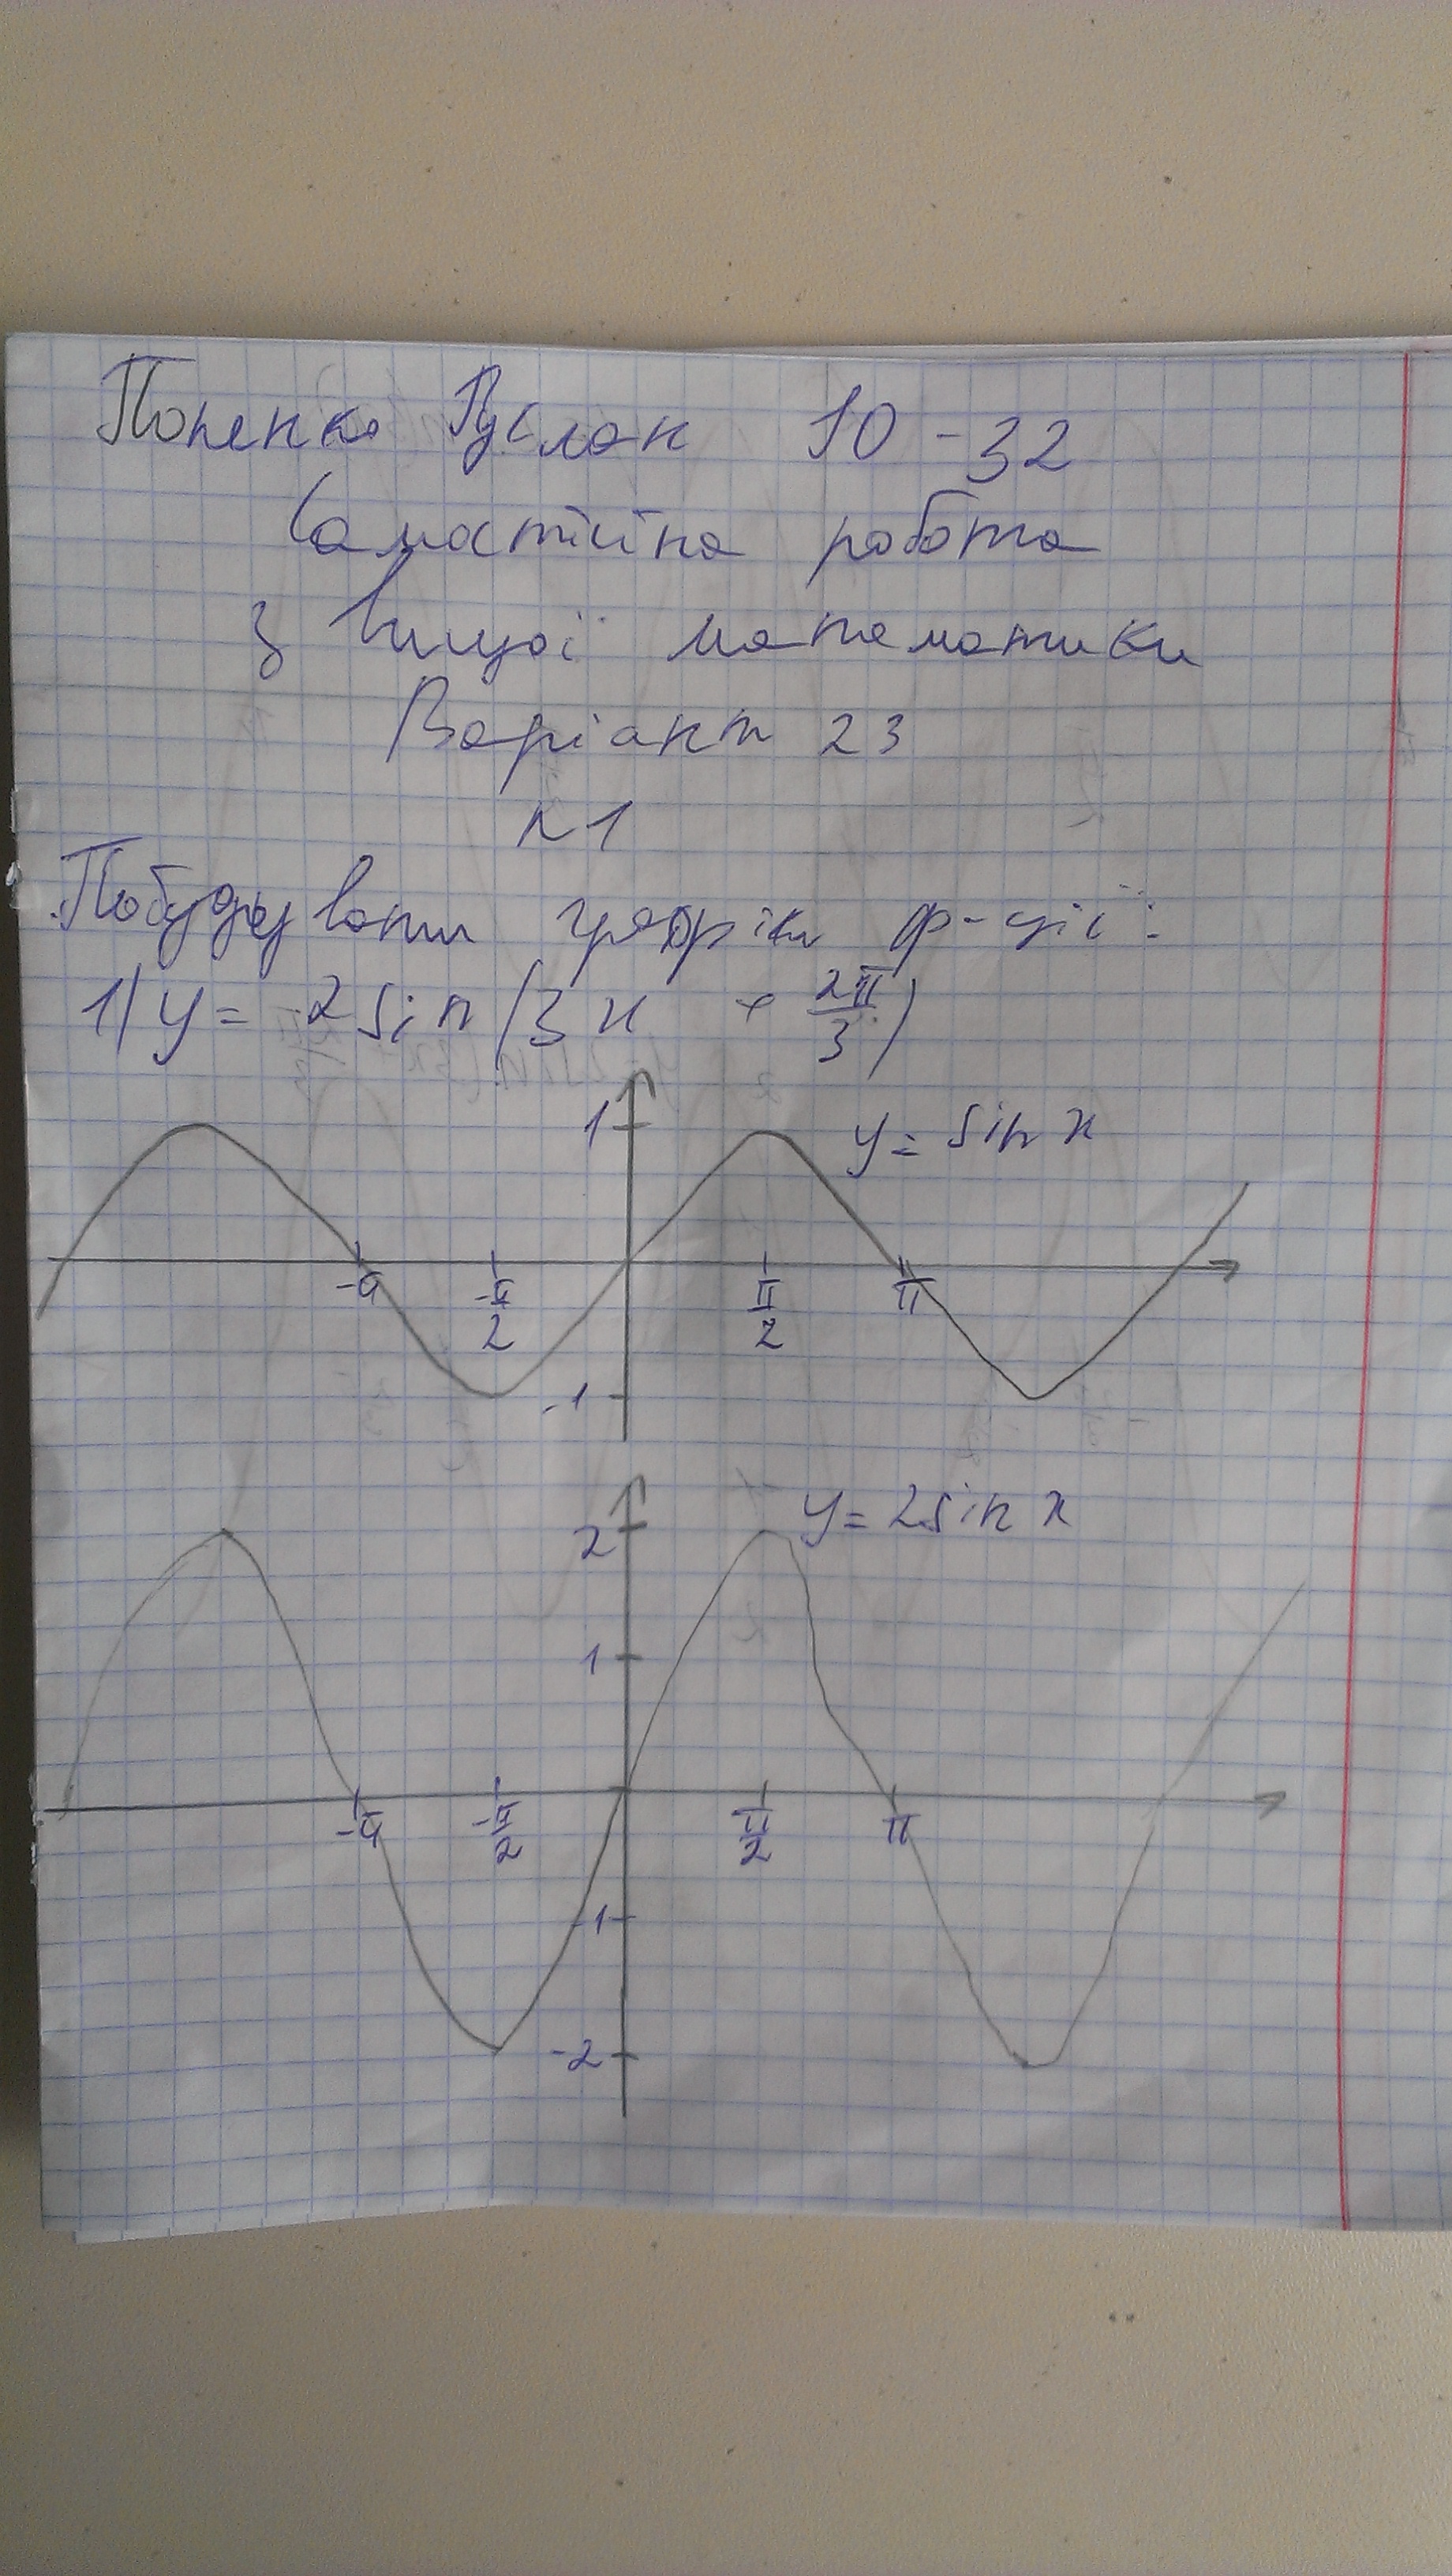 Попенко Руслан Ю-32
Самостійна робота
з вищої математики
Варіант 23
N1
Побудувати графіки ф-цій:
1) y = 2 sin (3x + 2π/3)
1
y = sin x
-π -π/2 π/2 π
-1
y = 2 sin x
2
1
-π -π/2 π/2 π
-1
-2